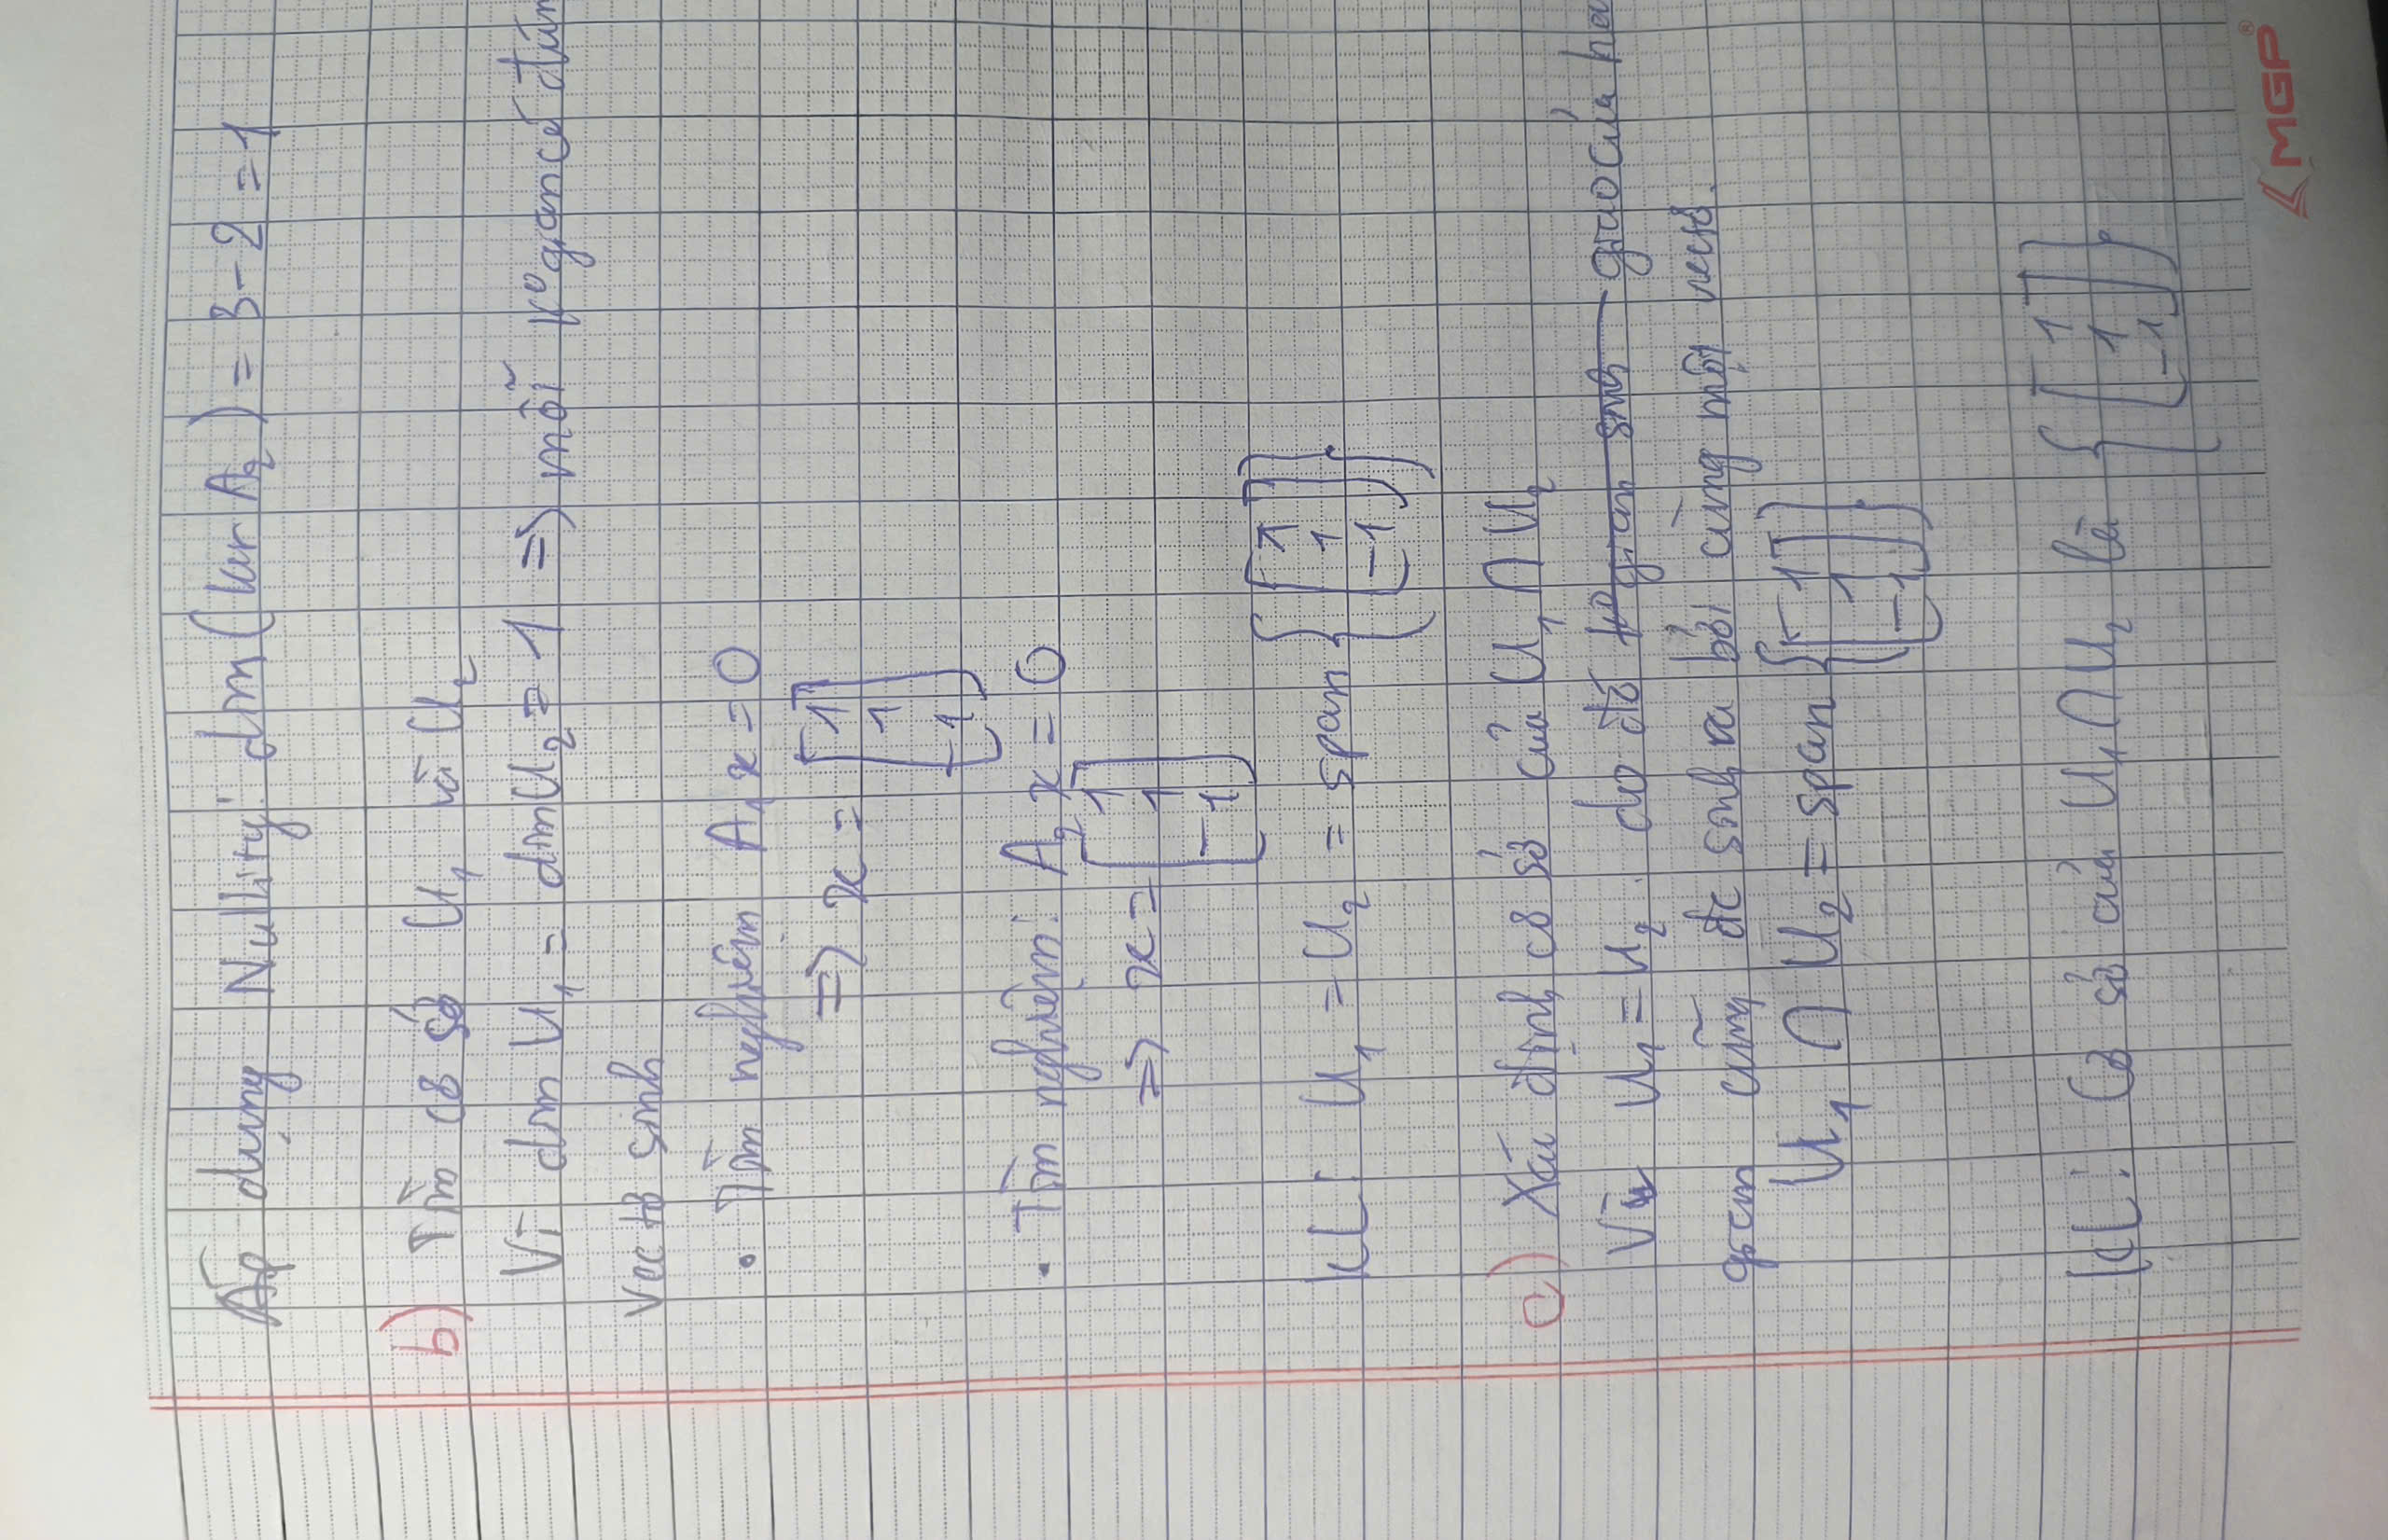 Áp dụng Nullity: dim(ker A₂) = 3 - 2 = 1
b) Tìm cơ sở U₁ và U₂
Vì dim U₁ = dim U₂ = 1 => mỗi k⁰ gian có đún
vectơ sinh
• Tìm nghiệm A₁x = 0
=> x = [1
1
-1]
• Tìm nghiệm: A₂x = 0
=> x = [1
1
-1]
KL: U₁ = U₂ = span {[1
1
-1]}.
c) Xác định cơ sở của U₁ ∩ U₂
Vì U₁ = U₂. do đó k⁰ gian sinh giao của ha
gian cũng đc sinh ra bởi cùng một vectơ.
U₁ ∩ U₂ = span {[1
1
-1]}.
KL: Cơ sở của U₁ ∩ U₂ là {[1
1
-1]}.
MGP®